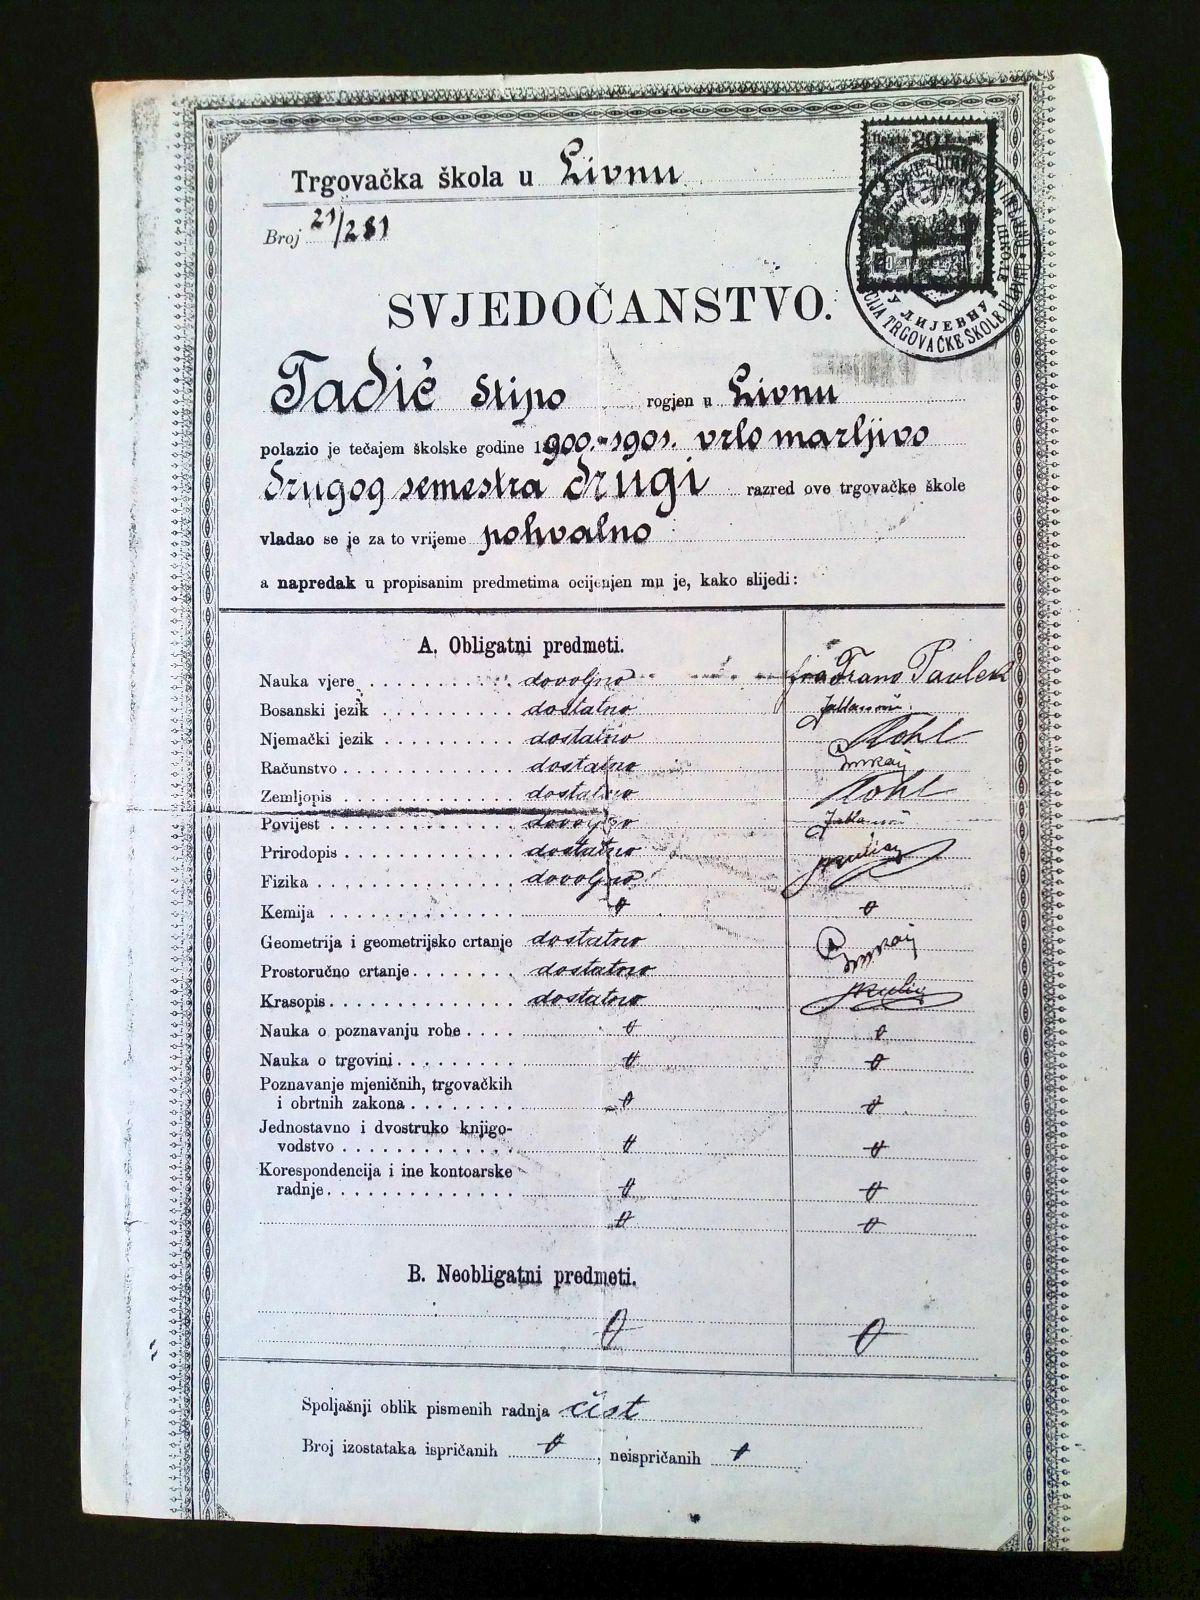 Trgovačka škola u Livnu
Broj 21/281
20
У ЛИЈЕВНУ
TRGOVAČKE ŠKOLE U
SVJEDOČANSTVO.
Tadić Stipo rogjen u Livnu
polazio je tečajem školske godine 1900.-1901. vrlo marljivo
drugog semestra drugi razred ove trgovačke škole
vladao se je za to vrijeme pohvalno
a napredak u propisanim predmetima ocijenjen mu je, kako slijedi:
A. Obligatni predmeti.
Nauka vjere dovoljno fra Frano
Bosanski jezik dostatno
Njemački jezik dostatno Rohl
Računstvo dostatno
Zemljopis dostatno Rohl
Povijest dovoljno
Prirodopis dostatno
Fizika dovoljno
Kemija
Geometrija i geometrijsko crtanje dostatno
Prostoručno crtanje dostatno
Krasopis dostatno
Nauka o poznavanju robe
Nauka o trgovini
Poznavanje mjeničnih, trgovačkih
i obrtnih zakona
Jednostavno i dvostruko knjigo-
vodstvo
Korespondencija i ine kontoarske
radnje
B. Neobligatni predmeti.
Spoljašnji oblik pismenih radnja čist
Broj izostataka ispričanih , neispričanih